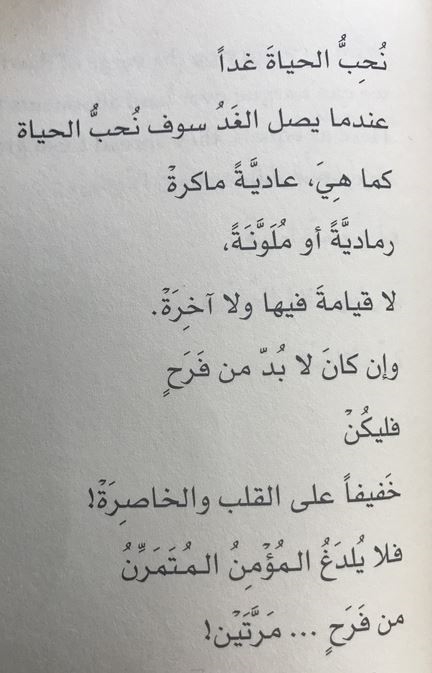 نُحِبُّ الحياةَ غداً
عندما يصل الغَدُ سوف نُحبُّ الحياة
كما هِيَ، عاديَّةً ماكرةْ
رماديَّةً أو مُلَوَّنَةً،
لا قيامةَ فيها ولا آخِرَةْ.
وإن كانَ لا بُدّ من فَرَحٍ
فليكُنْ
خَفيفاً على القلب والخاصِرَةْ!
فلا يُلدَغُ المُؤْمِنُ المُتَمَرِّنُ
من فَرَحٍ ... مَرَّتَيْن!